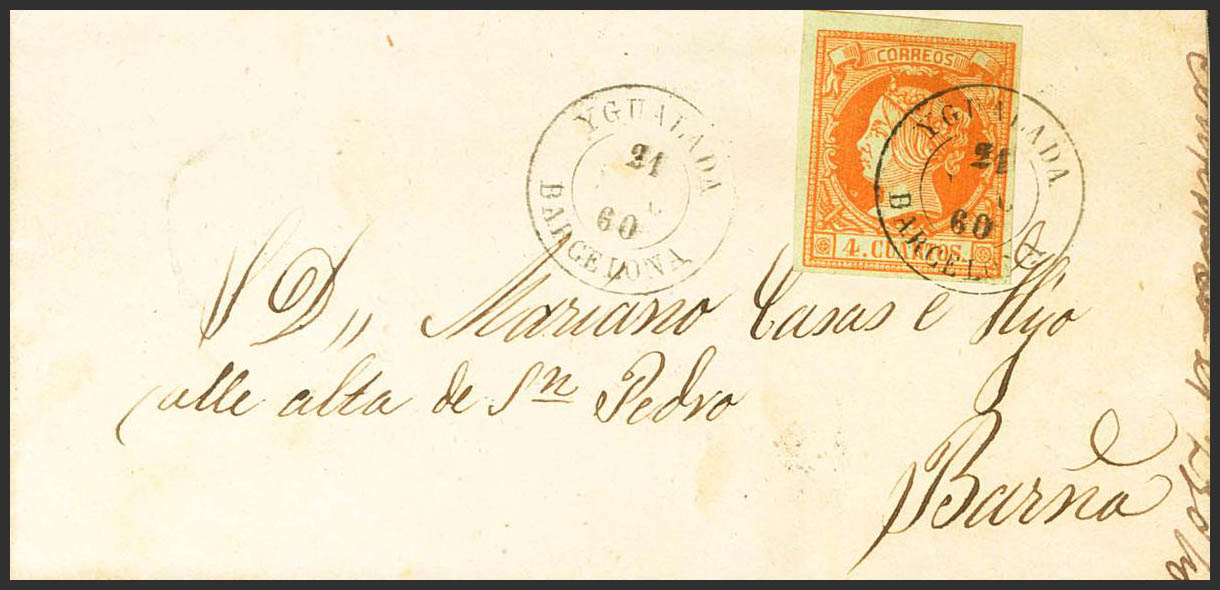 CORREOS
4. CUARTOS.
YGUALADA
21
60
BARCELONA
YGUALADA
21
60
BARCELONA
S D,, Mariano Casas e Hijo
Calle alta de Sn Pedro
Barña